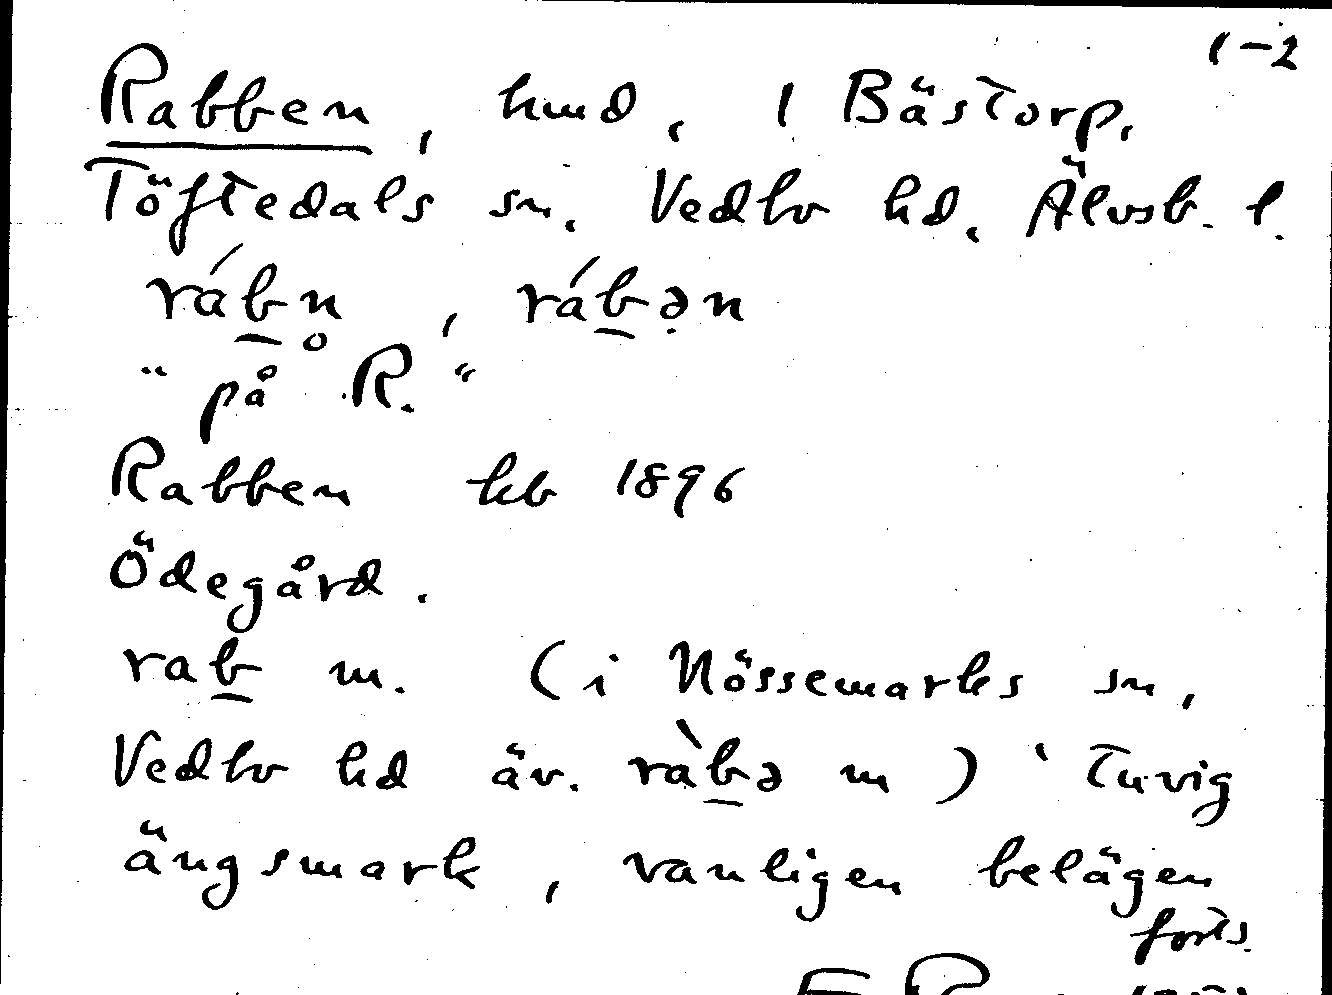 1-2
Rabben, hmd, 1 Bästorp,
Töftedals sn. Vedbo hd, Älvsb. l.
rábn̥, rábən
"på R."
Rabben kb 1896
Ödegård.
rab m. (i Nössemarks sn,
Vedbo hd äv. ràbə m) ‘tuvig
ängsmark, vanligen belägen
forts.